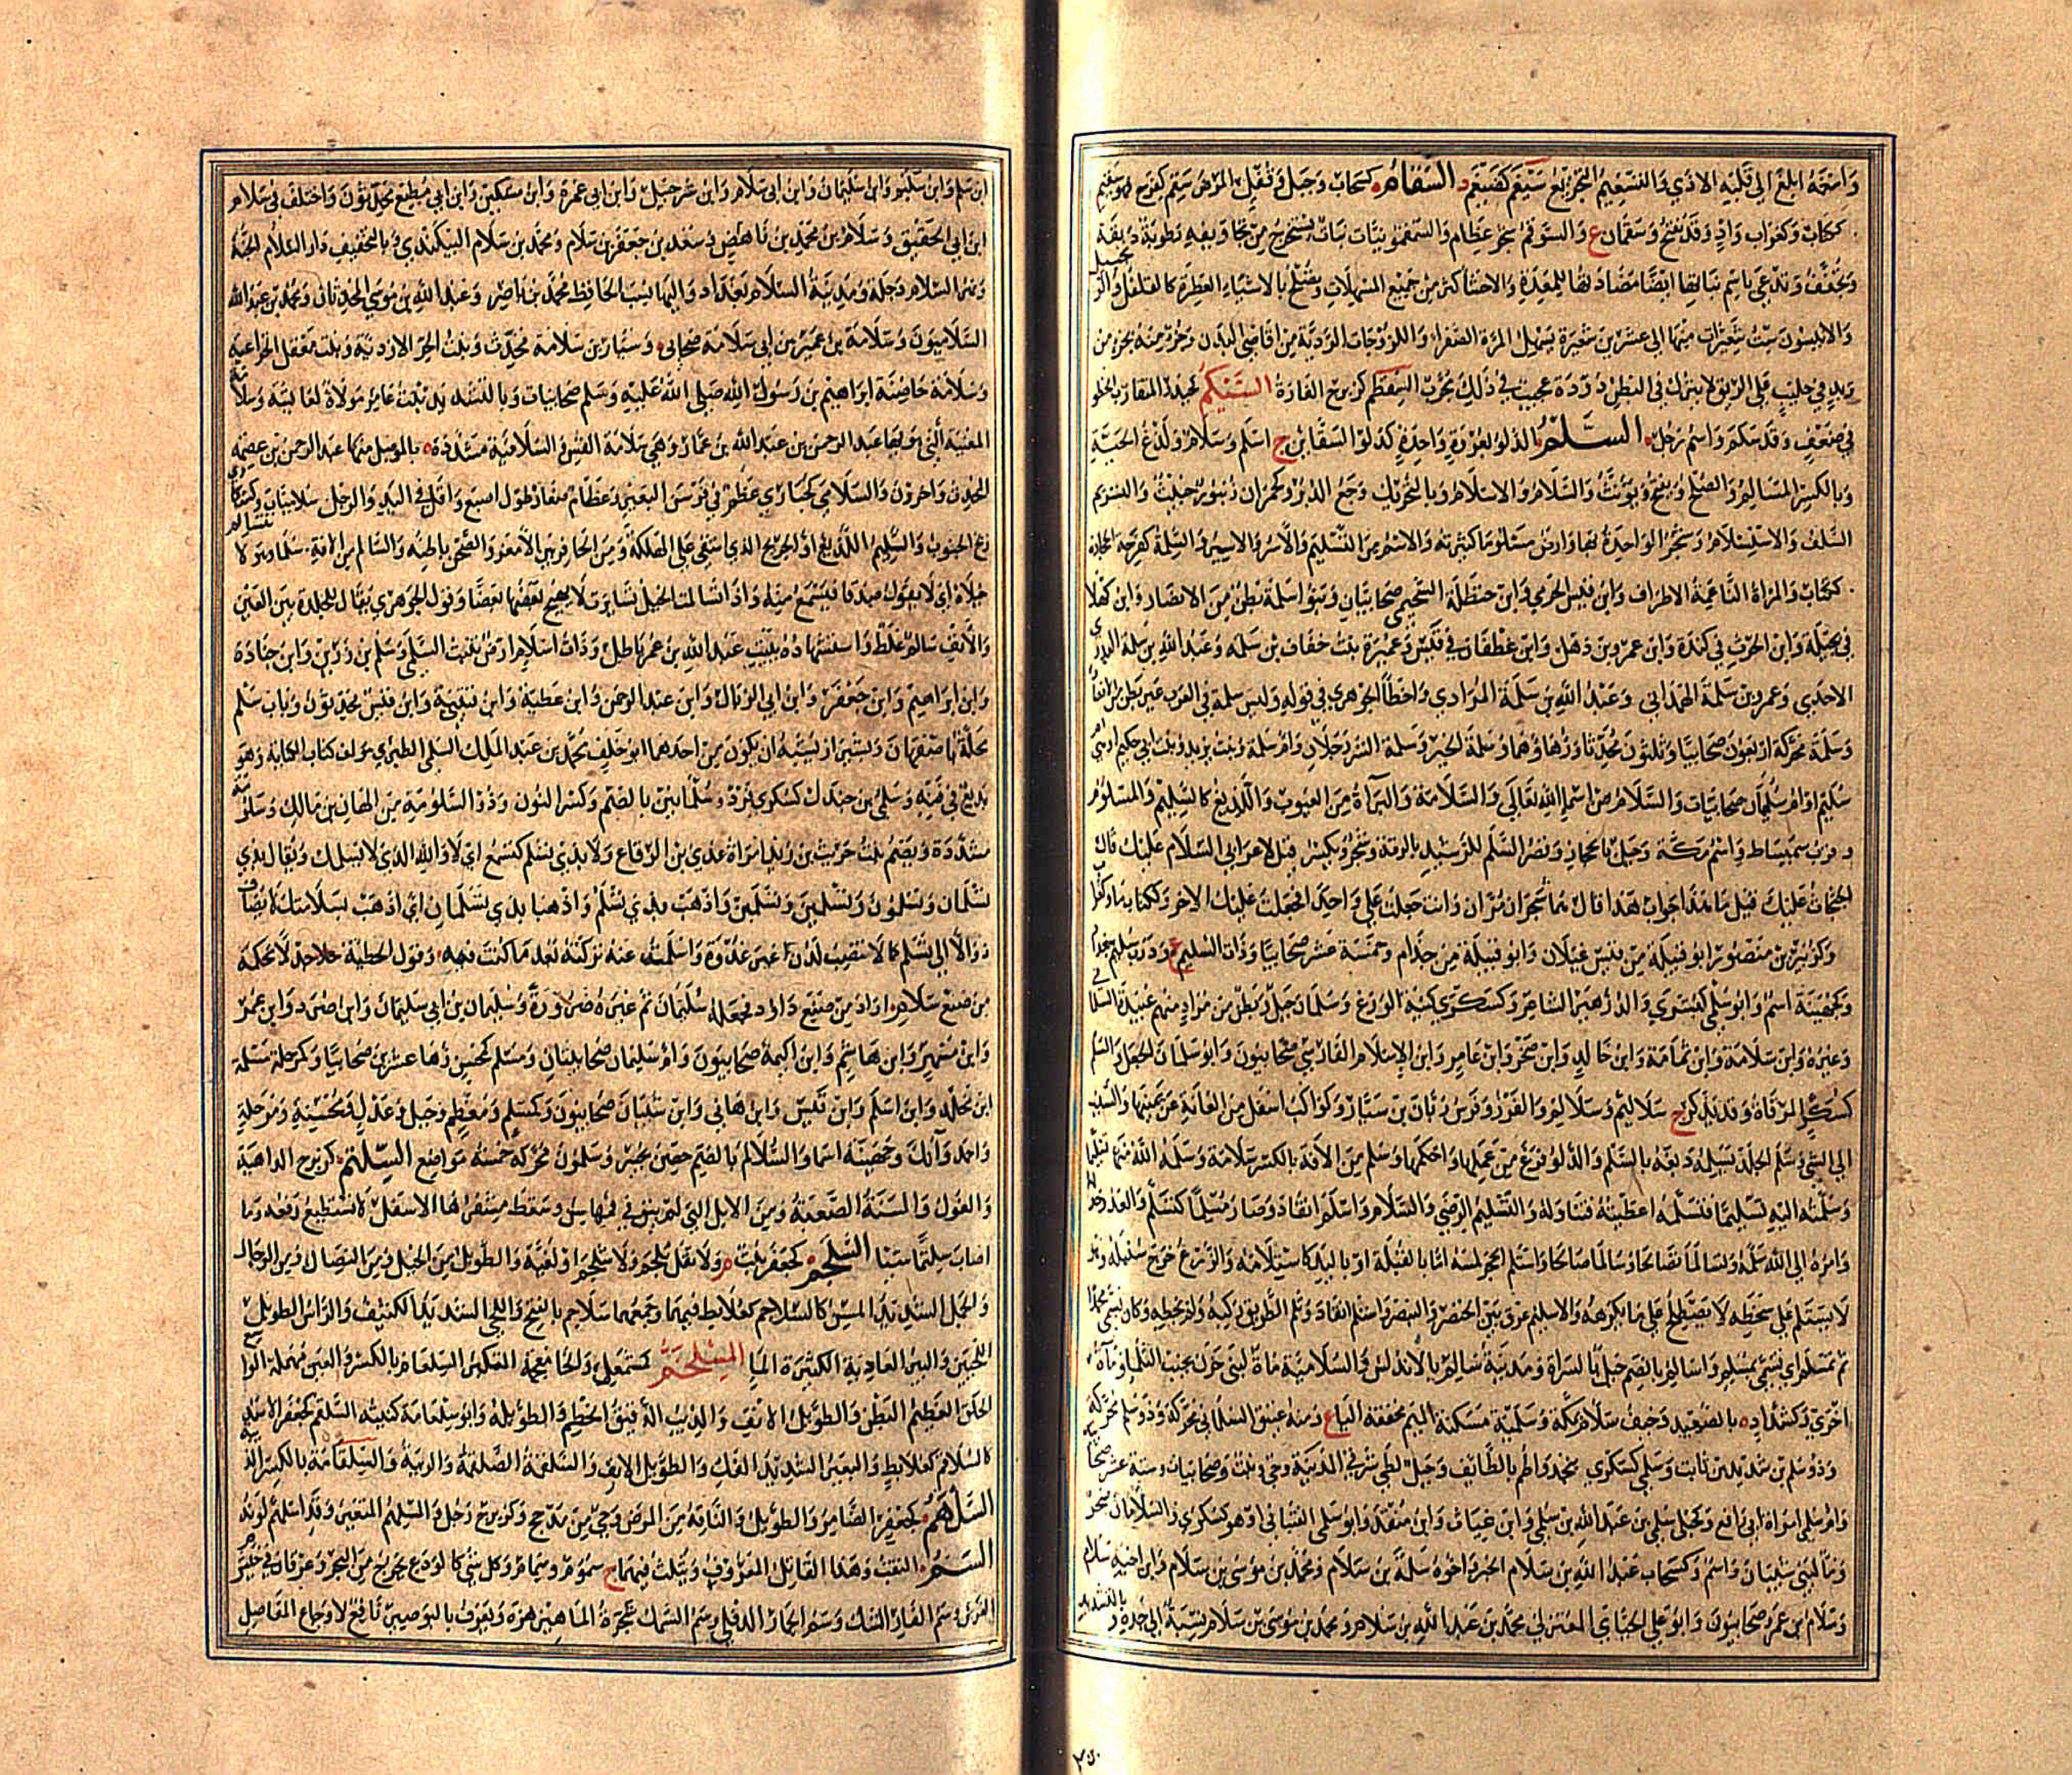 واسغمه ابلغ الى قلبه الاذى والتسغيم التجريع سيغم كضيغم د السقام كسحاب وجبل وقفل المرض سقم كفرح فهو سقيم
ككتاب وكغراب واد وقد يفتح وسقمان ع والسوقم شجر عظام والسقمونيا نبات يستخرج من تجاويفه رطوبة دبقة
وتجفف وتدعى باسم نباتها ايضا مضادتها للمعدة والاحشا اكثر من جميع المسهلات وتصلح بالاشياء العطرة كالفلفل والزنجبيل
والانيسون ست شعيرات منها الى عشرين شعيرة يسهل المرة الصفراء واللزوجات الردية من اقاصى البدن وجزء منه بجزء من
تربد في حليب على الريق لا يترك في البطن دودة عجيب في ذلك مجرب السقطم كزبرج الفارة السيكم كحيدر المقارب الخطو
في ضعف وقد سكم واسم رجل السلم الدلو بعروة واحدة كدلو السقائين ج اسلم وسلام ولدغ الحية
وبالكسر المسالم والصلح ويفتح ويؤنث والسلام والاسلام وبالتحريك
السلف والاستسلام وشجر الواحدة بهاء وارض مسلوماء كثيرته والاسم من التسليم والاسر والاسير والسلمة كفرحة الحجارة
ككتاب والمراة الناعمة الاطراف وابن قيس الجرمي وابن حنظلة السحيمي صحابيان وبنو سلمة بطن من الانصار وابن كهلا
في بجيلة وابن الحرث في كندة وابن عمرو بن ذهل وابن غطفان في قيس وعميرة بنت خفاف بن سلمه وعبد الله بن سلمة البدري
الاحدي وعمرو بن سلمة الهمداني وعبد الله بن سلمة المرادي واخطأ الجوهري في قوله وليس سلمة في العرب غير بطن الانصار
وسلمة محركة اربعون صحابيا وثلثون محدثا او زهاؤهما وسلمة الخير وسلمة الشر رجلان وام سلمة وبنت يزيد وبنت ابي حكيم او هي
سليم او ام سليمان صحابيات والسلام من اسماء الله تعالى والسلامة والبراءة من العيوب واللديغ كالسليم والمسلوم
و قرب سميساط واسم مكة وجبل بالحجاز وقصر السلم للرشيد بالرقة وشجر ويكسر قيل لاعرابي السلام عليك قال
الجثجاث عليك قيل ما هذا جواب هذا قال هما شجران مران وانت جعلت علي واحدا فجعلت عليك الاخر وككتاب ماء وكغراب ع
وكزبير بن منصور ابو قبيلة من قيس عيلان وابو قبيلة من جذام وخمسة عشر صحابيا وذات السليم ع ودرب سليم ببغداد
وكجهينة اسم وابو سلمى كبشرى والد زهير الشاعر وكسكرى كنية الوزغ وسلمان جبل وبطن من مراد منهم عبيدة السلماني
وغيره وابن سلامة وابن ثمامة وابن خالد وابن صخر وابن عامر وابن الاسلام الفارسي صحابيون وابو سلمان الجعل والسلم
كسكر المرقاة وقد تذكر ج سلاليم وسلالم والغرز وفرس زبان بن سيار وكواكب اسفل من العانة عن يمينها والسبب
الى الشي وسلم الجلد يسلمه دبغه بالسلم والدلو فرغ من عملها واحكمها وسلم من الافة بالكسر سلامة وسلمه الله منها تسليما
وسلمته اليه تسليما فتسلمه اعطيته فتناوله والتسليم الرضى والسلام واسلم انقاد وصار مسلما كتسلم والعدو خذله
وامره الى الله سلمه وتسالما تصالحا وسالما صالحا واستلم الحجر لمسه اما بالقبلة او باليد كاستلامه والزرع خرج سنبله وهو
لا يستلم على سخطه لا يصطلح على ما يكرهه والاسيلم عرق بين الخنصر والبنصر واستسلم انقاد وثلم الطريق ركبه ولم يخطئه وكان يسمى محمدا
ثم تمسلم اي تسمى بمسلم واسالم بالضم جبل بالسراة ومدينة سالم بالاندلس والسلامية ماءة لبني حزن بجنب الثلماء وماءة
اخرى وكشداد ة بالصعيد وخيف سلام بمكة وسلمية مسكنة الميم مخففة الياء ع ومنه عتيق السلماني محركة وذو سلم محركة
وذو سلم بن شديد بن ثابت وسلمى كسكرى بنجد واطم بالطائف وجبل لطي شرقي المدينة وحي ونبت وصحابيات وستة عشر صحابيا
وام سلمى امراة ابي رافع وكحبلى سلمى بن عبد الله بن سلمى وابن غياث وابن منقذ وابو سلمى القتباني او هو كسكرى والسلامان شجر
وماء لبني شيبان واسم وكسحاب عبد الله بن سلام الحبر واخوه سلمة بن سلام ومحمد بن موسى بن سلام وابن اخيه سلام
وسلام بن عمرو صحابيون وابو علي الجبائي المعتزلي محمد بن عبد الله بن سلام ومحمد بن موسى بن سلام نسبة الى جده وبالتشديد
٣٥٠
ابن سلم وابن سليم وابن سليمان وابن ابي سلام وابن شرحبيل وابن ابي عمرة وابن مسكين وابن ابي مطيع محدثون واختلف في سلام
ابن ابي الحقيق وسلام بن محمد بن ناهض وسعد بن جعفر بن سلام ومحمد بن سلام البيكندي و بالتخفيف دار السلام الجنة
ونهر السلام دجلة ومدينة السلام بغداد واليها نسب الحافظ محمد بن ناصر وعبد الله بن موسى المحدثان ومحمد بن عبد الله
السلاميون وسلامة بن عمير بن ابي سلامة صحابي وسيار بن سلامة محدث وبنت الحر الازدية وبنت معقل الخزاعية
وسلامة حاضنة ابراهيم بن رسول الله صلى الله عليه وسلم صحابيات وبالتشديد بنت عامر مولاة لعائشة وسلامة
المغنية التي هويها عبد الرحمن بن عبد الله بن عمار وهي سلامة القس والسلامية مشددة ة بالموصل منها عبد الرحمن بن عصمة
المحدث واخرون والسلامى كحبارى عظم في فرسن البعير وعظام صغار طول اصبع واقل في اليد والرجل سلاميات وكسكارى
ريح الجنوب والسليم اللديغ او الجريح الذي اشفى على الهلكة ومن الحافر بين الامعر والصحن باطنه والسالم من الافة
خيلاه اي لا يقول صدقا فيسمع منه واذا تسالمت الخيل تسايرت لا يهيج بعضها بعضا وقول الجوهري يقال للجلدة بين العين
والانف سالم غلط واستشهاده ببيت عبد الله بن عمر باطل وذات اسلام ارض تنبت السلم وسلم بن زرير وابن جنادة
وابن ابراهيم وابن جعفر وابن ابي الذيال وابن عبد الرحمن وابن عطية وابن قتيبة وابن قيس محدثون وباب سلم
محلة باصفهان وبشيراز يشبه ان يكون من احدهما ابو خلف محمد بن عبد الملك السلمي الطبري مؤلف كتاب الكناية وهو
بديع في فنه وسلمى بن جندل كسكرى فرد وسلمانين بالضم وكسر النون وذو السلومة من الهان بن مالك وسلومة
مشددة وبضم بنت حريث بن زيد امراة عدي بن الرقاع ولا بذي تسلم كتسمع اي لا والله الذي يسلمك ويقال بذي
تسلمان وتسلمون وتسلمين وتسلمن واذهب بذي تسلم واذهبا بذي تسلمان اي اذهب بسلامتك لا يضاف
ذو الا الى تسلم كما لا تنصب لدن غير غدوة واسلمت عنه تركته بعد ما كنت فيه وقول الحطيئة جدلاء محكمة
من صنع سلام اراد من صنع داود فجعله سليمان ثم غيره ضرورة وسليمان بن ابي سليمان وابن صرد وابن عمرو
وابن مسهر وابن هاشم وابن اكيمة صحابيون وام سليمان صحابيتان ومسلم كمحسن زهاء عشرين صحابيا وكمرحلة مسلمة
ابن مخلد وابن اسلم وابن قيس وابن هاني وابن شيبان صحابيون وكمسلم ومعظم وجبل وعدل ومحسنة ومرحلة
واحمد وآنك وجهينة اسما والسلالم بالضم حصن بخيبر وسلمون محركة خمسة مواضع السلتم كزبرج الداهية
والغول والسنة الصعبة ومن الابل التي لم يبق في فمها سن وسقط مشفرها الاسفل لا تستطيع رفعه وما
اصاب سلتما شيئا السلجم كجعفر نبت م ولا تقل ثلجم ولا شلجم او لغية والطويل من الخيل ومن النصال ومن الرجال
والجمل الشديد المسن كالسلاجم كعلابط فيهما وجمعهما سلاجم بالفتح واللحي الشديد الكثيف والراس الطويل
اللحيين والبئر العادية الكثيرة الماء المسلحم كمشمعل والخاء معجمة المتكبر السلعام بالكسر والعين مهملة الواسع
الحلق العظيم البطن والطويل الانف والذيب الدقيق الخطم والطويلة وابو سلعامة كنيته السلغم كجعفر الاسد
كالسلاقم كعلابط والبعير الشديد الفك والطويل الانف والسلقمة الصلقمة والريبة والسلقامة بالكسر الذ
السلهم كجعفر الضامر والطويل والناقه من المرض وحي من مذحج وكزبرج رجل والسلهم المتغير وقد اسلهم لونه
السم الثقب وهذا القاتل المعروف ويثلث فيهما ج سموم وسمام وكل شي كالودع يخرج من البحر وعرقان في خيشوم
الفرس وسم الفار الشك وسم الحمار الدفلى وسم السمك شجرة الماهي زهره ويعرف بالبوصير نافع لاوجاع المفاصل